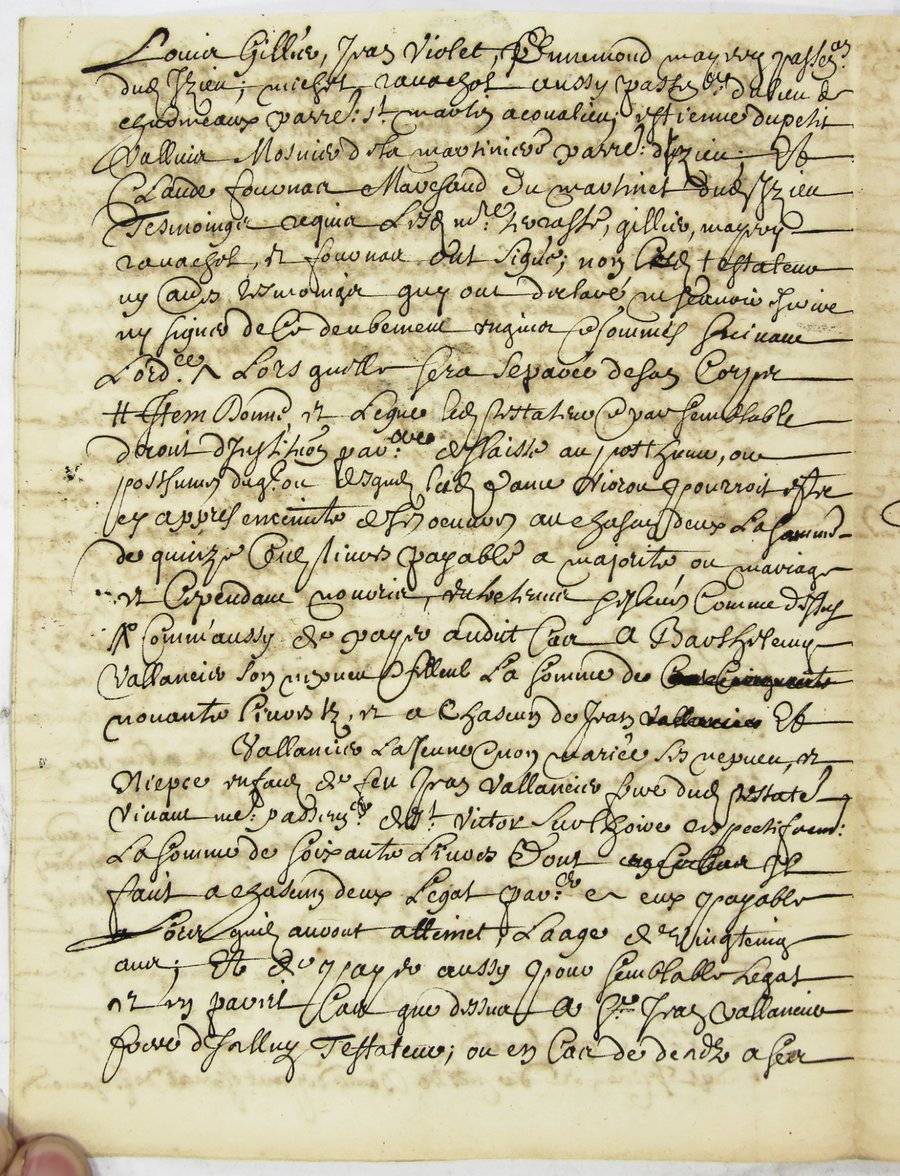 Louis Gillier, Jean Violet, Ennemond mayery passem.
dud Izieu; michel ravachol aussy passem. du lieu de
chaumeaux parre: st. martin acoualieu; estienne dupetit
Vallnia Mosnier dela martiniere parre: dizieu; Et
Claude fournas Marchand du martinet dud Izieu
Tesmoings requis Lesd mre. terrasse, gillier, mayery
ravachol, et fournas ont signé; non Led testateur
ny autres tesmoings quy ont declaré ne scavoir escrire
ny signer de ce deubement enquis & sommés suivant
Lordce. / Lors quelle sera separée de son Corps
# Item Donne et Legue led testateur & par semblable
droit dInstitution par.re & laisse au posthume, ou
posthumes dugl. ou desquels lad dame Nioron pourroit estre
cy appres enceinte & ses oeuvres a chascun deux La somme
de quinze Cens livres payable a majorité ou mariage
et Cependant nourris, entretenus selon Comme dessus
Comm'aussy de payer audit Cas A Barthelemy
Vallancier son nepveu & filleul La somme de
nonante Livres tz, et a Chascun de Jean Vallancier Et
Vallancier La Jeune & non mariée ses nepveu, et
Niepce enfans de feu Jean Vallancier frere dud testate.
Vivant me. passem. de st. Victor sur Thoire respectivem.:
La somme de soixante Livres Dont Il
fait a chascun deux Legat par.er & eux payable
Lors quils auront atteint Laage de vingtcinq
ans; Et de payer aussy pour semblable Legat
et en pareil Cas que dessus A Sr. Jean Vallancier
frere dIcelluy Testateur; ou en Cas de decedz a ses